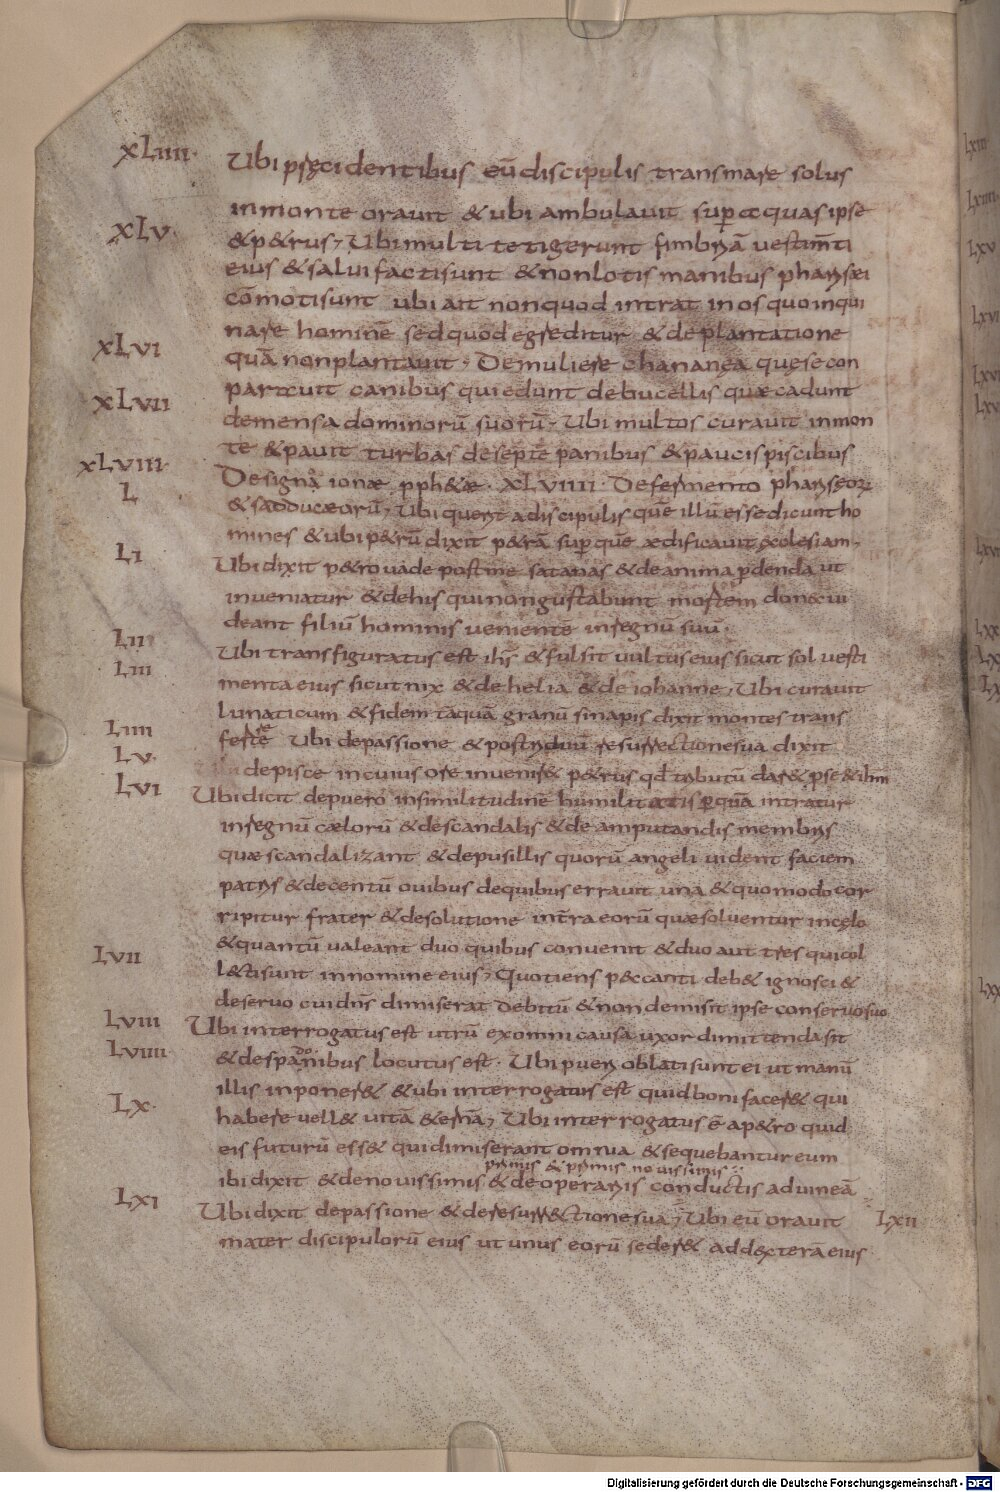 XLIIII· Ubi pręcidentibus eū discipulis transmare solus
in monte orauit & ubi ambulauit sup aquas ipse
XLV· & p&rus, Ubi multi tetigerunt fimbriā uestim̄ti
eius & salui facti sunt & non lotis manibus pharisæi
cōmoti sunt ubi ait non quod intrat in os quoinqui
nare hominē sed quod egreditur & de plantatione
XLVI quā non plantauit· De muliere chananęa quę se con
XLVII parauit canibus qui edunt de bucellis quæ cadunt
de mensa dominorū suorū· Ubi multos curauit in mon
XLVIII· te & pauit turbas de septē panibus & paucis piscibus
L De signa ionæ pph&æ· XLVIIII· De fermento phariseorꝝ
& sadducæorū, Ubi querit a discipulis quē illū esse dicunt ho
mines & ubi p&rū dixit p&rā sup quē ædificauit ęcclesiam·
LI Ubi dixit p&ro uade post me satanas & de anima pdenda ut
inueniatur & de his qui non gustabunt mortem donec ui
deant filiū hominis uenientē in regnū suū·
LII Ubi transfiguratus est ih̄s & fulsit uultus eius sicut sol uesti
LIII menta eius sicut nix & de helia & de iohanne, Ubi curauit
lunaticum & fidem tāquā granū sinapis dixit montes trans
LIIII ferre Ubi de passione & post triduū resurrectione sua dixit
LV· de pisce in cuius ore inuenir& p&rus qd tributū dar& p se & ihm̄
LVI Ubi dicit de puero in similitudinē humilitatis p quā intratur
in regnū cælorū & de scandalis & de amputandis membris
quæ scandalizant & de pusillis quorū angeli uident faciem
patris & de centū ouibus de quibus errauit una & quomodo cor
ripitur frater & de solutione in trā eorū quæ soluentur in cęlo
LVII & quantū ualeant duo quibus conuenit & duo aut tres qui col
l&ti sunt in nomine eius, Quotiens peccanti deb& ignosci &
de seruo cui dn̄s dimiserat debitū & non demisit ipse conseruo suo
LVIII Ubi interrogatus est utrū ex omni causa uxor dimittenda sit
LVIIII· & de spadonibus locutus est· Ubi pueri oblati sunt ei ut manū
illis inponer& & ubi interrogatus est quid boni facer& qui
LX· habere uell& uitā & ernā, Ubi interrogatus ē a p&ro quid
eis futurū ess& qui dimiserant omnia & sequebantur eum
primis & primis nouissimis
ibi dixit & de nouissimis & de operariis conductis ad uineā
LXI Ubi dixit de passione & de resurrectione sua, Ubi eū orauit LXII
mater discipulorū eius ut unus eorū seder& ad dexterā eius
Digitalisierung gefördert durch die Deutsche Forschungsgemeinschaft - DFG